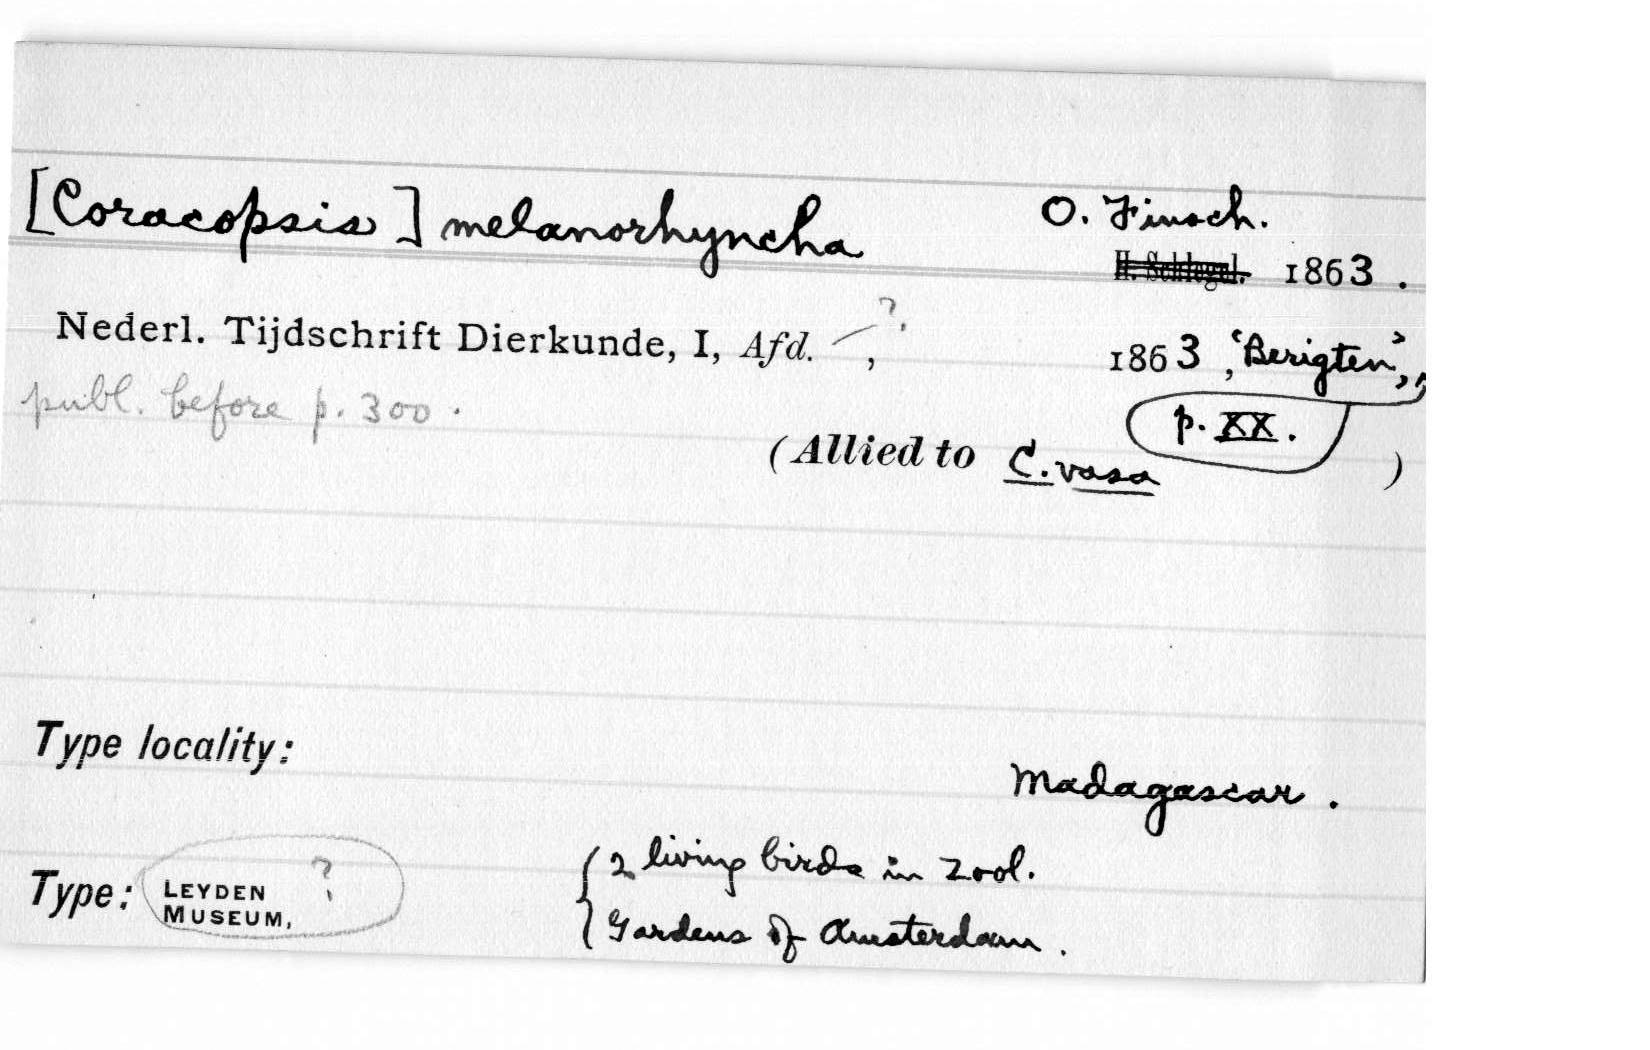 [Coracopsis] melanorhyncha O. Finsch.
H. Schlegel. 1863.
Nederl. Tijdschrift Dierkunde, I, Afd. —?, 1863, 'Berigten',
publ. before p. 300.
p. XX.
(Allied to C. vasa )
Type locality:
Madagascar.
Type: LEYDEN MUSEUM, ?
{ 2 living birds in Zool.
Gardens of Amsterdam.